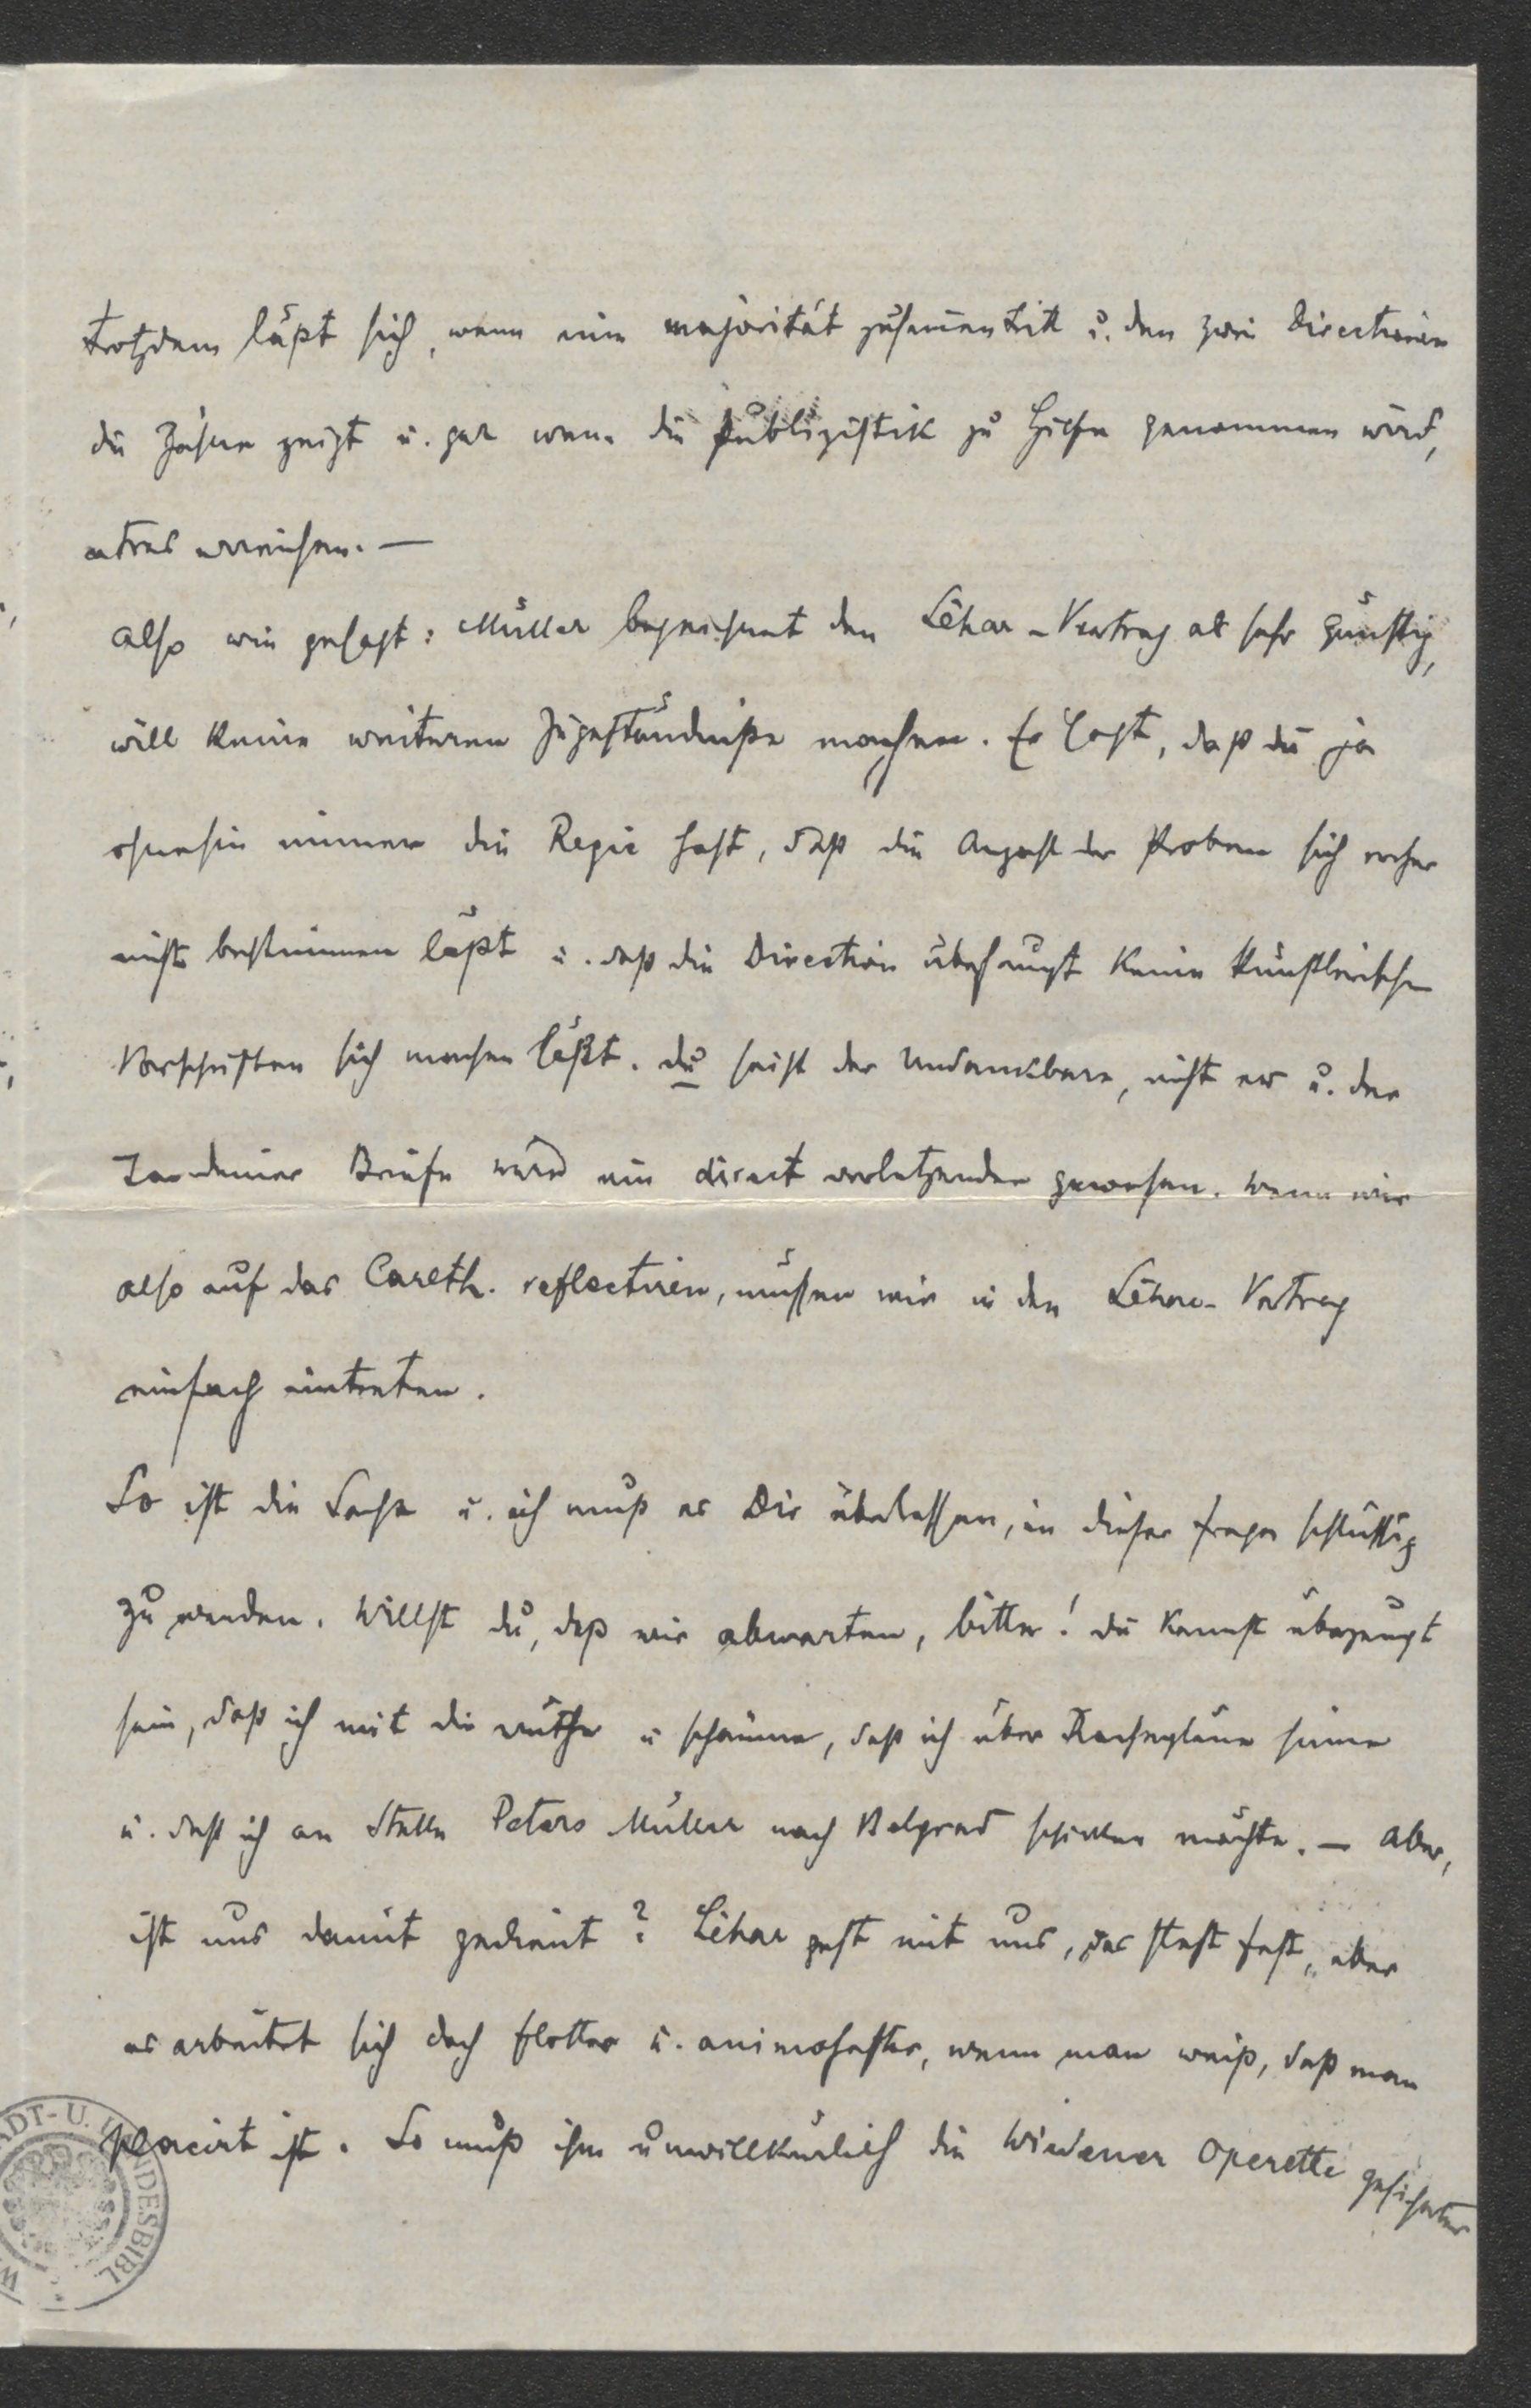 trotzdem läßt sich, wenn eine majorität zusammentritt u. den zwei Directionen
die Zähne zeigt u. gar wenn die Publizistik zu Hilfe genommen wird,
etwas erreichen. —
Also wie gesagt: Müller bezeichnet den Léhar-Vertrag als sehr günstig,
will keine weiteren Zugeständniße machen. Er sagt, daß du ja
ohnehin immer die Regie hast, daß die Anzahl der Proben sich vorher
nicht bestimmen läßt u. daß die Direction überhaupt keine künstlerischen
Vorschriften sich machen läßt. du seist der Undankbare, nicht er u. der
Ton deiner Briefe wäre ein direct verletzender gewesen. Wenn wir
also auf das Carlth. reflectiren, müssen wir in den Léhar-Vertrag
einfach eintreten.
So ist die Sache u. ich muß es Dir überlassen, in dieser Frage schlüssig
zu werden. Willst du, daß wir abwarten, bitte! du kannst überzeugt
sein, daß ich mit dir wüthe u schäume, daß ich über Rachepläne sinne
u. daß ich an Stelle Peters Müller nach Belgrad schicken möchte. — Aber,
ist uns damit gedient? Léhar geht mit uns, das steht fest, aber
es arbeitet sich doch flotter u. animoser, wenn man weiß, daß man
placirt ist. So muß ihm unwillkürlich die Wiedener Operette gesicherter
STADT- U. LANDESBIBL.